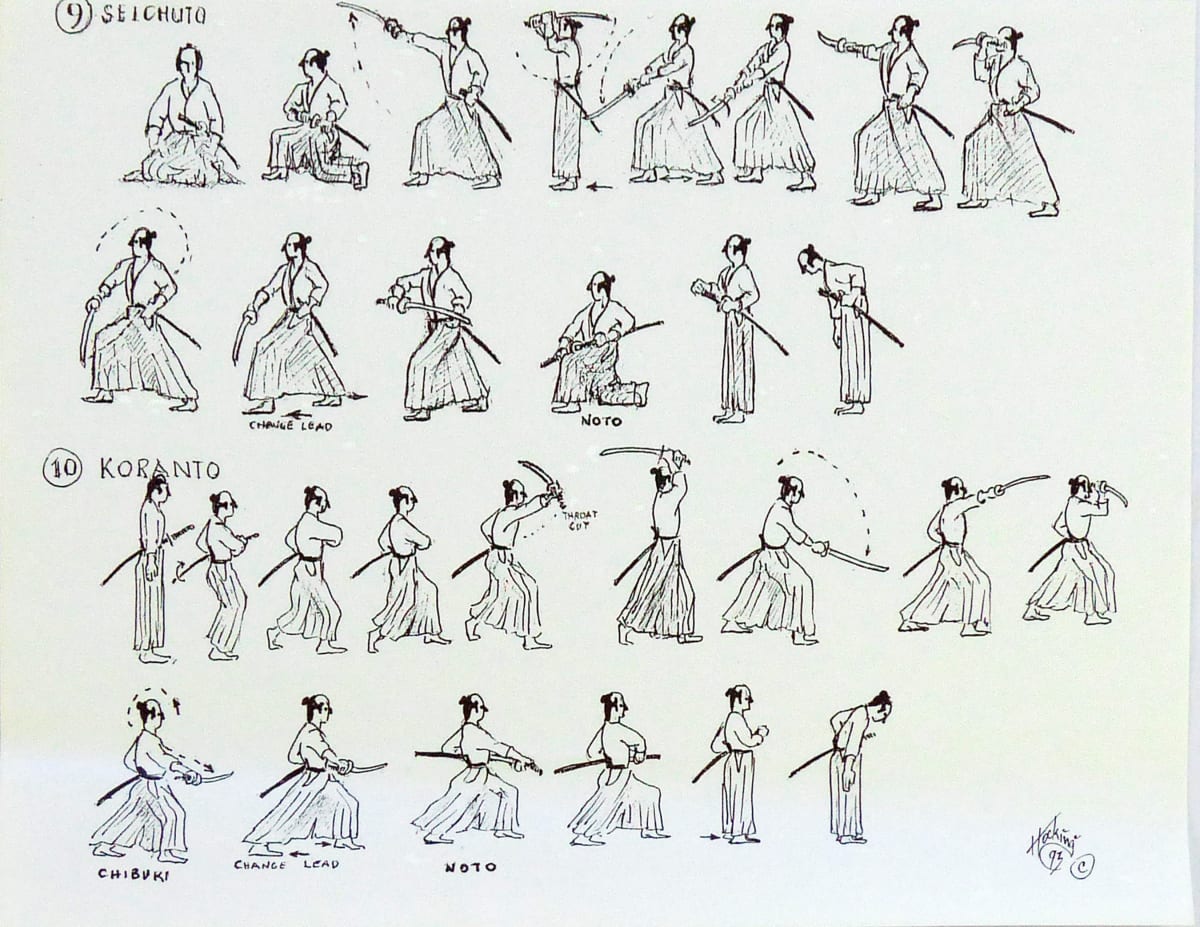 9 SEICHUTO
CHANGE LEAD
NOTO
10 KORANTO
THROAT
CUT
CHIBUKI
CHANGE LEAD
NOTO
Hocking
92 C